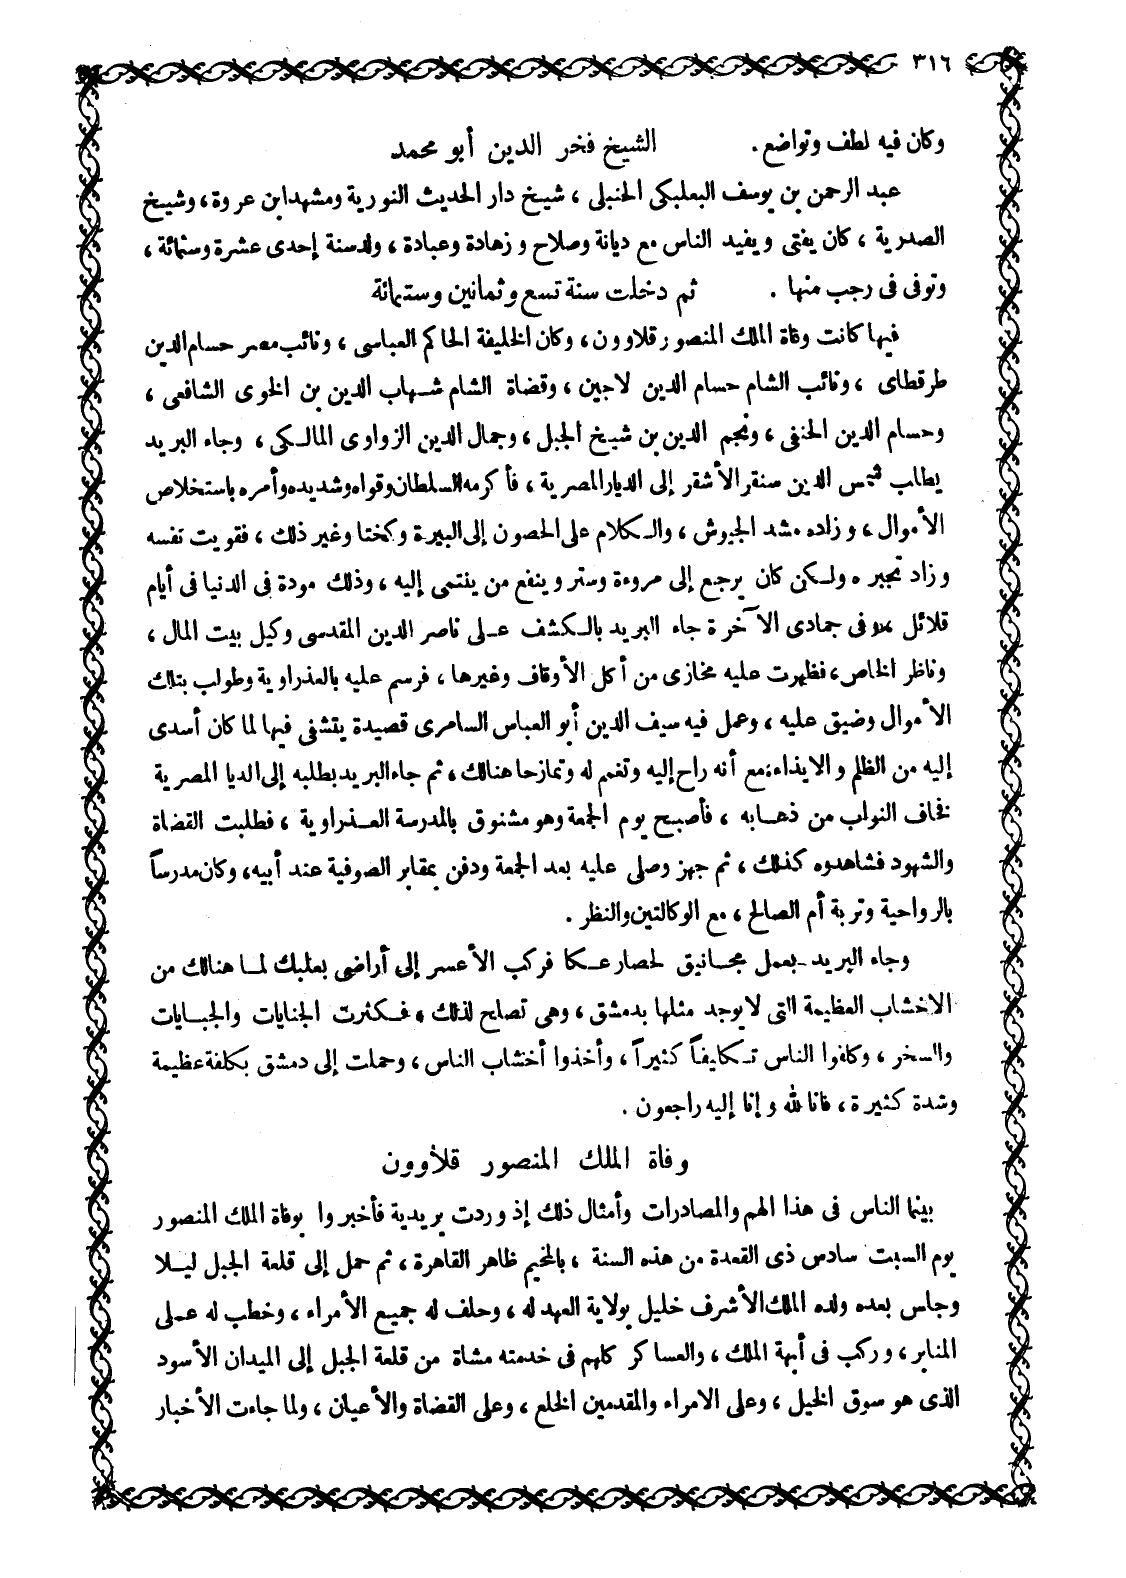 ٣١٦
وكان فيه لطف وتواضع. الشيخ فخر الدين أبو محمد
عبد الرحمن بن يوسف البعلبكى الحنبلى، شيخ دار الحديث النورية ومشهد ابن عروة، وشيخ
الصدرية، كان يفتى ويفيد الناس مع ديانة وصلاح وزهادة وعبادة، ولد سنة إحدى عشرة وستمائة،
وتوفى فى رجب منها. ثم دخلت سنة تسع وثمانين وستمائة
فيها كانت وفاة الملك المنصور قلاوون، وكان الخليفة الحاكم العباسى، ونائب مصر حسام الدين
طرقطاى، ونائب الشام حسام الدين لاجين، وقضاة الشام شهاب الدين بن الخوى الشافعى،
وحسام الدين الحنفى، ونجم الدين بن شيخ الجبل، وجمال الدين الزواوى المالكى، وجاء البريد
يطلب شمس الدين سنقر الأشقر إلى الديار المصرية، فأكرمه السلطان وقواه وشديده وأمره باستخلاص
الأموال، وزاده مشد الجيوش، والكلام على الحصون إلى البيرة وكختا وغير ذلك، فقويت نفسه
وزاد تجبره ولكن كان يرجع إلى مروءة وستر وينفع من ينتمى إليه، وذلك مودة فى الدنيا فى أيام
قلائل، وفى جمادى الآخرة جاء البريد بالكشف على ناصر الدين المقدسى وكيل بيت المال،
وناظر الخاص، فظهرت عليه مخازى من أكل الأوقاف وغيرها، فرسم عليه بالعذراوية وطولب بتلك
الأموال وضيق عليه، وعمل فيه سيف الدين أبو العباس السامرى قصيدة يتشفى فيها لما كان أسدى
إليه من الظلم والايذاء، مع أنه راح إليه وتغمم له وتمازحا هنالك، ثم جاء البريد بطلبه إلى الديا المصرية
فخاف النواب من ذهابه، فأصبح يوم الجمعة وهو مشنوق بالمدرسة العذراوية، فطلبت القضاة
والشهود فشاهدوه كذلك، ثم جهز وصلى عليه بعد الجمعة ودفن بمقابر الصوفية عند أبيه، وكان مدرساً
بالرواحية وتربة أم الصالح، مع الوكالتين والنظر.
وجاء البريد بعمل مجانيق لحصار عكا فركب الأعسر إلى أراضى بعلبك لما هنالك من
الاخشاب العظيمة التى لا يوجد مثلها بدمشق، وهى تصلح لذلك، فكثرت الجنايات والجبايات
والسخر، وكلفوا الناس تكليفاً كثيراً، وأخذوا أخشاب الناس، وحملت إلى دمشق بكلفة عظيمة
وشدة كثيرة، فانا لله وإنا إليه راجعون.
وفاة الملك المنصور قلاوون
بينما الناس فى هذا الهم والمصادرات وأمثال ذلك إذ وردت بريدية فأخبروا بوفاة الملك المنصور
يوم السبت سادس ذى القعدة من هذه السنة، بالمخيم ظاهر القاهرة، ثم حمل إلى قلعة الجبل ليلا
وجلس بعده ولده الملك الأشرف خليل بولاية العهد له، وحلف له جميع الأمراء، وخطب له على
المنابر، وركب فى أبهة الملك، والعساكر كلهم فى خدمته مشاة من قلعة الجبل إلى الميدان الأسود
الذى هو سوق الخيل، وعلى الامراء والمقدمين الخلع، وعلى القضاة والأعيان، ولما جاءت الأخبار